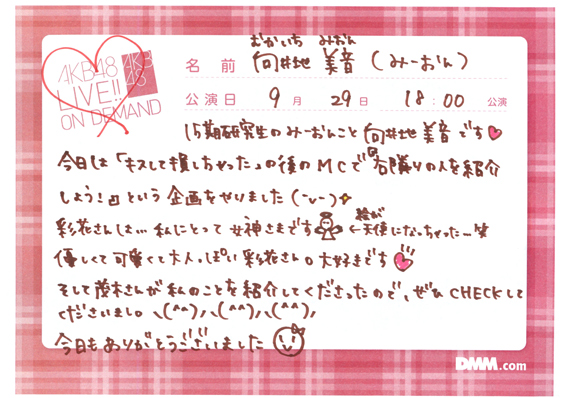 AKB48
LIVE!!
ON DEMAND
AKB
48
むかいち みおん
名前 向井地 美音 (みーおん)
公演日 9月 29日 18:00 公演
15期研究生のみーおんこと向井地美音です
今日は「キスして損しちゃった」の後のMCで『右隣りの人を紹介
しよう!』という企画をやりました(ˇ⌣ˇ)
彩花さんは…私にとって女神さまです ←絵が天使になっちゃった…笑
優しくて可愛くて大人っぽい彩花さん。大好きです
そして茂木さんが私のことを紹介してくださったので、ぜひCHECKして
くださいまし。\(^^)/\(^^)/\(^^)/
今日もありがとうございました
DMM.com